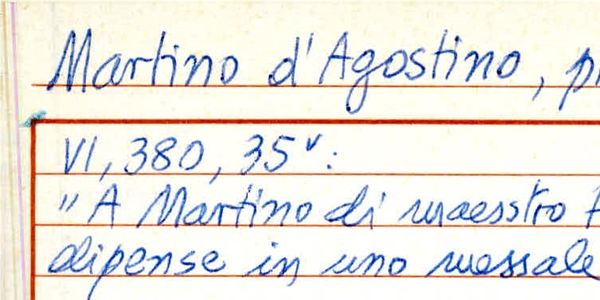 Martino d'Agostino,
VI, 380, 35v:
"A Martino di maesstro
dipense in uno messale